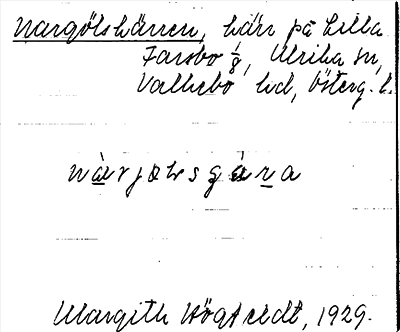 Nargölskärren, kärr på Lilla
Farsbo 1/8, Ulrika sn,
Vallebo hd, Österg. l.
nàrjølsgára
Margith Högstedt, 1929.